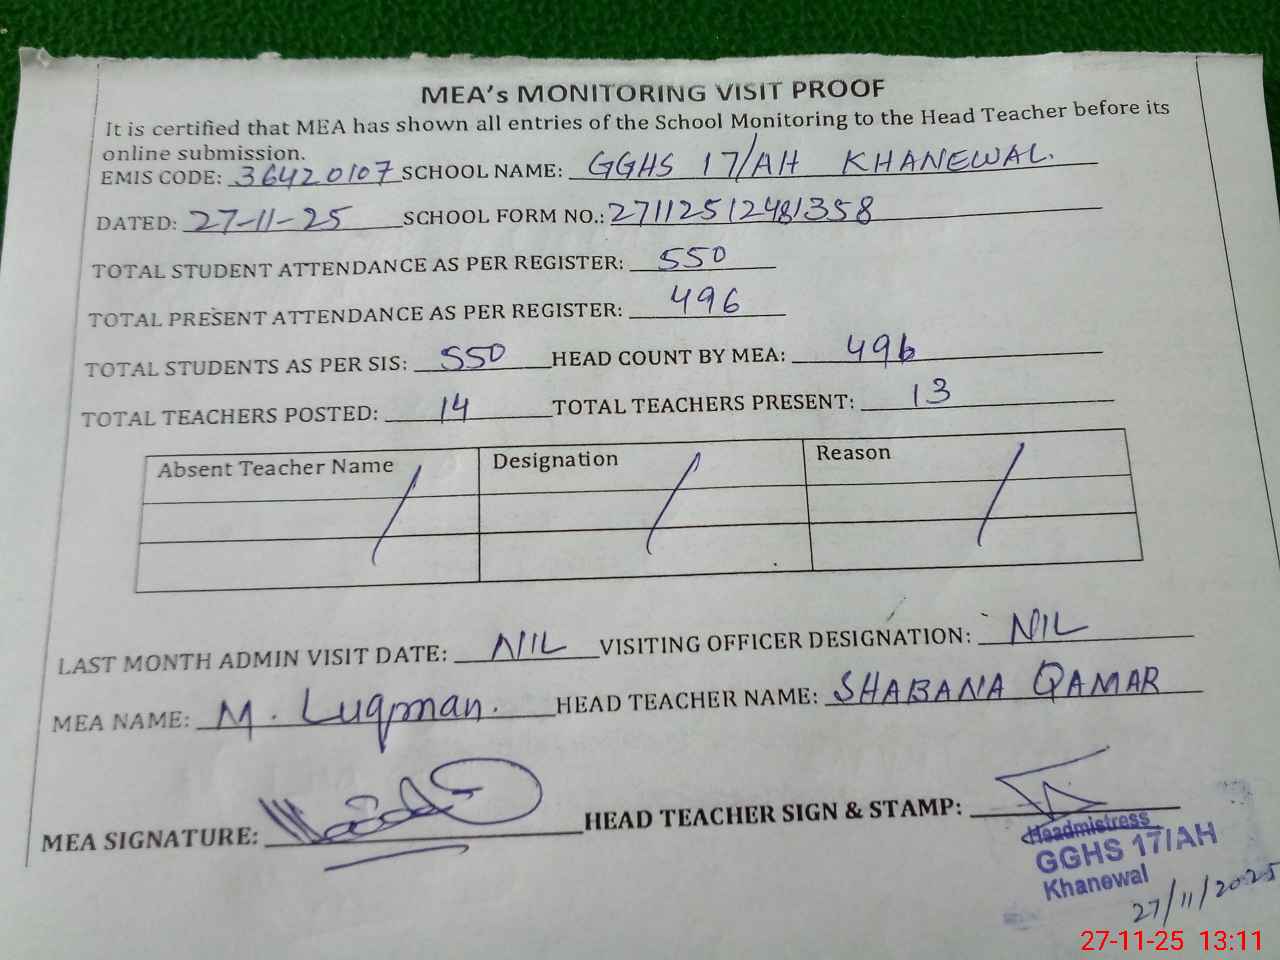 MEA's MONITORING VISIT PROOF
It is certified that MEA has shown all entries of the School Monitoring to the Head Teacher before its
online submission.
EMIS CODE: 36420107 SCHOOL NAME: GGHS 17/AH KHANEWAL.
DATED: 27-11-25 SCHOOL FORM NO.: 27112512481358
TOTAL STUDENT ATTENDANCE AS PER REGISTER: 550
TOTAL PRESENT ATTENDANCE AS PER REGISTER: 496
TOTAL STUDENTS AS PER SIS: 550 HEAD COUNT BY MEA: 496
TOTAL TEACHERS POSTED: 14 TOTAL TEACHERS PRESENT: 13
Absent Teacher Name Designation Reason
LAST MONTH ADMIN VISIT DATE: NIL VISITING OFFICER DESIGNATION: NIL
MEA NAME: M. Luqman. HEAD TEACHER NAME: SHABANA QAMAR
MEA SIGNATURE: HEAD TEACHER SIGN & STAMP:
Headmistress
GGHS 17/AH
Khanewal
27/11/2025
27-11-25 13:11